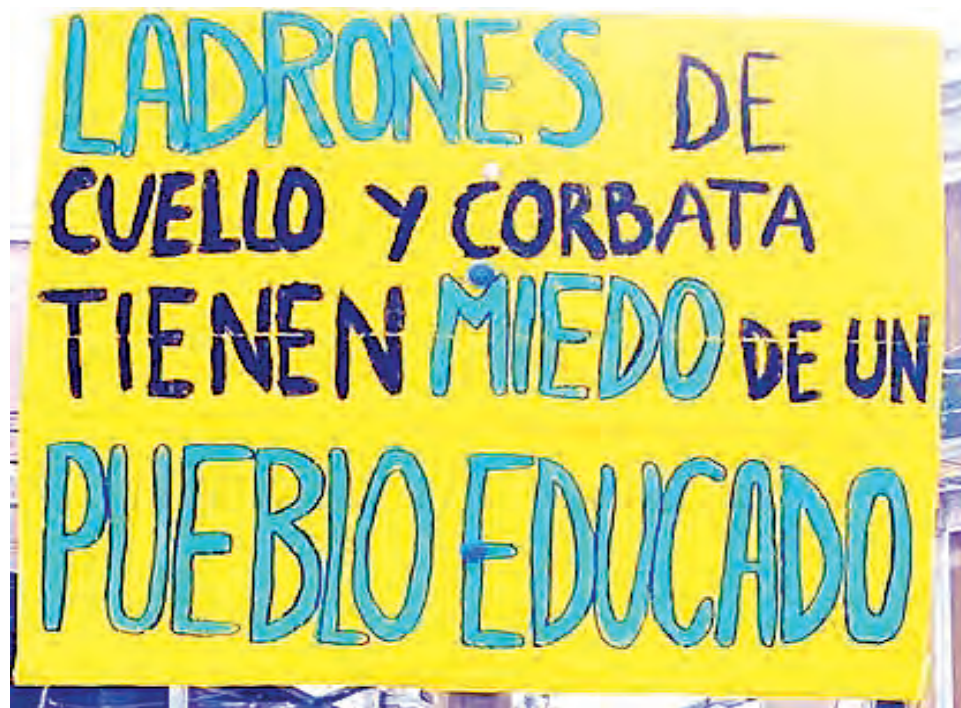 LADRONES DE
CUELLO Y CORBATA
TIENEN MIEDO DE UN
PUEBLO EDUCADO